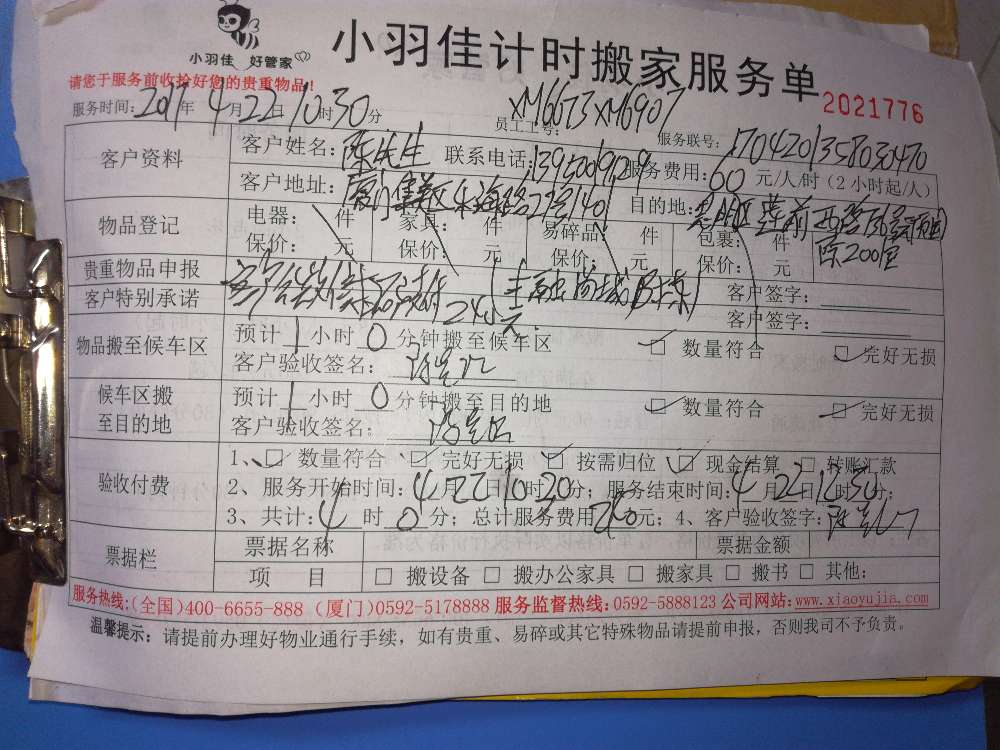 小羽佳 好管家
小羽佳计时搬家服务单
请您于服务前收拾好您的贵重物品!
2021776
服务时间:2017年4月22日10时30分
员工工号: XM6673XM6907
服务联号: 1704201358030470
客户资料
客户姓名:陈先生 联系电话: 服务费用:60元/人/时(2小时起/人)
客户地址:厦门集美 目的地:思明区莲前西路
物品登记
电器: 件 家具: 件 易碎品: 件 包裹: 件
保价: 元 保价: 元 保价: 元 保价: 元
贵重物品申报 客户签字:
客户特别承诺 客户签字:
物品搬至候车区
预计1小时0分钟搬至候车区 □ 数量符合 □ 完好无损
客户验收签名:
候车区搬至目的地
预计1小时0分钟搬至目的地 □ 数量符合 □ 完好无损
客户验收签名:
验收付费
1、□ 数量符合 □ 完好无损 □ 按需归位 □ 现金结算 □ 转账汇款
2、服务开始时间:4月22日10时20分;服务结束时间:4月22日12时 分;
3、共计:4时0分;总计服务费用240元;4、客户验收签字:
票据栏
票据名称 票据金额
项 目 □ 搬设备 □ 搬办公家具 □ 搬家具 □ 搬书 □ 其他:
服务热线:(全国)400-6655-888 (厦门)0592-5178888 服务监督热线:0592-5888123 公司网站:www.xiaoyujia.com
温馨提示:请提前办理好物业通行手续,如有贵重、易碎或其它特殊物品请提前申报,否则我司不予负责。